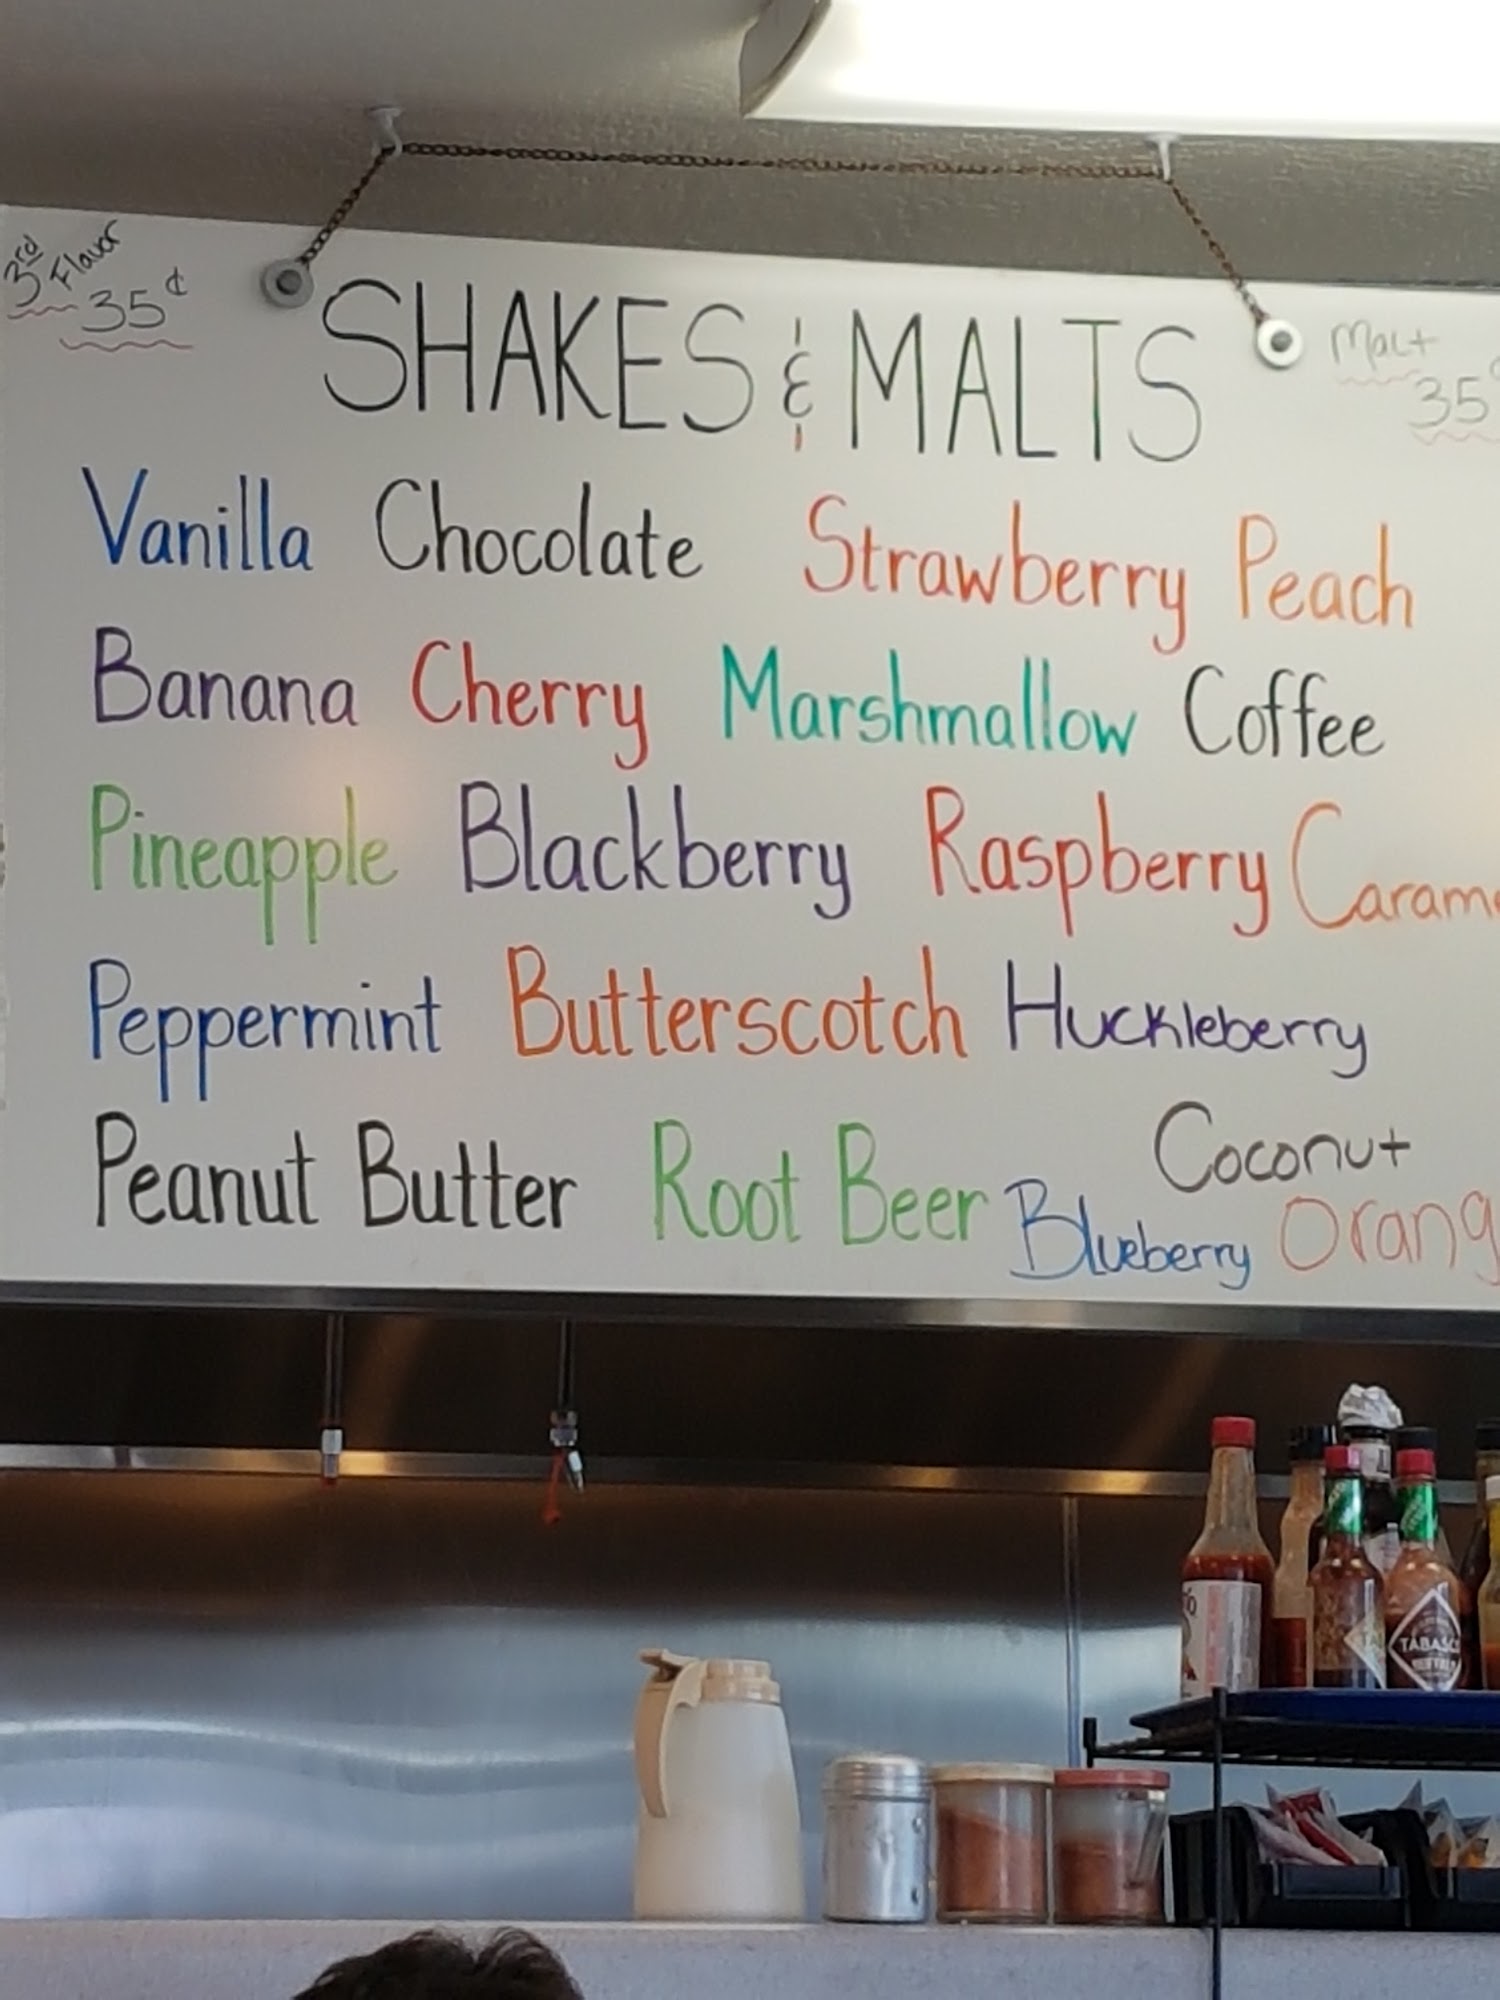 3rd Flavor
35¢
SHAKES & MALTS
Malt
35
Vanilla Chocolate Strawberry Peach
Banana Cherry Marshmallow Coffee
Pineapple Blackberry Raspberry Carame
Peppermint Butterscotch Huckleberry
Peanut Butter Root Beer Coconut
Blueberry Orang
TABASC